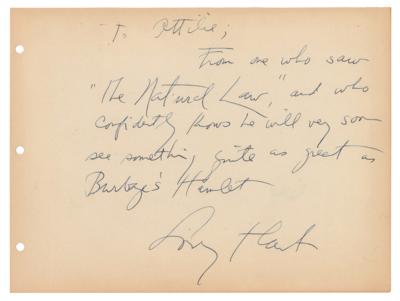 To Ottilie;
From one who saw
"The Natural Law," and who
confidently knows he will very soon
see something quite as great as
Burbage's Hamlet
Hart